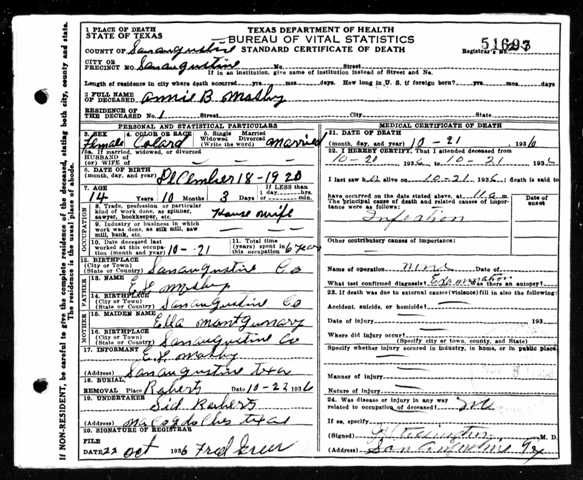 1 PLACE OF DEATH
STATE OF TEXAS
TEXAS DEPARTMENT OF HEALTH
BUREAU OF VITAL STATISTICS
STANDARD CERTIFICATE OF DEATH
COUNTY OF San augustine
Registrar's No.
CITY OR
PRECINCT NO. San augustine No. Street
If in an institution, give name of institution instead of Street and No.
Length of residence in city where death occurred? yrs. mos. days. How long in U. S. if foreign born? yrs. mos. days
2 FULL NAME
OF DECEASED annie B. Mosby
RESIDENCE OF
THE DECEASED NO. 1 Street City State
PERSONAL AND STATISTICAL PARTICULARS
3. SEX Female
4. COLOR OR RACE Colard
5. Single Married
Widowed, Divorced
(Write the word) married
5a. If married, widowed, or divorced
HUSBAND OF
(or) WIFE OF
6. DATE OF BIRTH
(month, day, and year) December 18-1920
7. AGE 14 10 Months 3 Days
If LESS than
1 day
Hours
or Minutes
8. Trade, profession, or particular
kind of work done, as spinner,
sawyer, bookkeeper, etc. House wife
9. Industry or business in which
work was done, as silk mill, saw
mill, bank, etc.
10. Date deceased last
worked at this occupa-
tion (month and year) 10-21
11. Total time
(years) spent in
this occupation 6 year
12. BIRTHPLACE
(City or Town)
(State or Country) San augustine Co
13. NAME E.L. Mosby
14. BIRTHPLACE
(City or Town)
(State or Country) San augustine Co
15. MAIDEN NAME Ella montgumary
16. BIRTHPLACE
(City or Town)
(State or Country) San augustine Co
17. INFORMANT E.L. Mosby
(Address) San augustine texas
18. BURIAL,
REMOVAL Place Roberts Date 10-22 1936
19. UNDERTAKER Sid Roberts
(Address) Nacogdoches texas
20. SIGNATURE OF REGISTRAR
FILE
DATE 22 Oct 1936 Fred Greer
MEDICAL CERTIFICATE OF DEATH
21. DATE OF DEATH
(month, day, and year) 10-21 1936
22. I HEREBY CERTIFY, That I attended deceased from
10-20 1936 to 10-21 1936
I last saw alive on 10-21 1936; death is said to
have occurred on the date stated above, at 11 a m.
The principal cause of death and related causes of
importance were as follows:
Date of
onset
Infection
Other contributory causes of importance:
Name of operation none Date of
What test confirmed diagnosis? Was there an autopsy?
23. If death was due to external causes (violence) fill in also the following:
Accident, suicide, or homicide?
Date of injury 193
Where did injury occur?
(Specify city or town, county and state)
Specify whether injury occurred in industry, in home, or in public place.
Manner of injury
Nature of injury
24. Was disease or injury in any way
related to occupation of deceased? no
If so, specify
(Signed) M. D.
(Address) San Augustine Tx
OCCUPATION
FATHER
MOTHER
IF NON-RESIDENT, be careful to give the complete residence of the deceased, stating both city, county and state.
The residence is the usual place of abode.